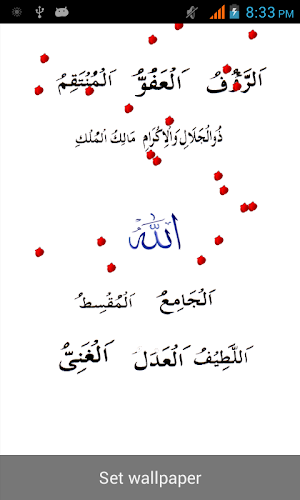 8:33 PM
اَلرَّؤُفُ اَلْعَفُوُّ اَلْمُنْتَقِمُ
ذُوالْجَلَالِ وَالْاِكْرَامِ مَالِكُ الْمُلْكِ
اللّٰه
اَلْجَامِعُ اَلْمُقْسِطُ
اَللَّطِيْفُ اَلْعَدَلَ اَلْغَنِىُّ
Set wallpaper